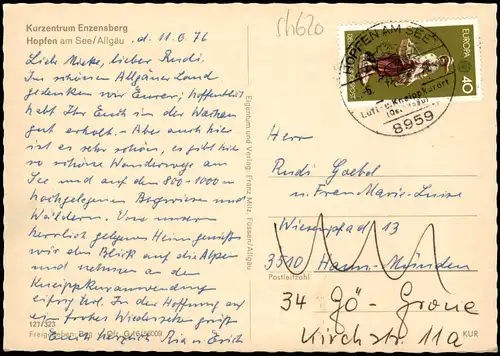 Kurzentrum Enzensberg
Hopfen am See/Allgäu
d. 11.6.76
sh620
HOPFEN AM SEE
Luft- u. Kneippkurort
(Ostallgäu)
8959
EUROPA
40
Liebe Mieke, lieber Rudi.
Im schönen Allgäuer Land
gedenken wir Eurer; hoffentlich
habt Ihr Euch in der Wachau
gut erholt. - Aber auch hier
ist es sehr schön, es gibt hier
so schöne Wanderwege am
See und auf den 800-1000 m
hochgelegenen Bergwiesen und
Wäldern. Von unserem
herrlich gelegenen Heim genießen
wir den Blick auf die Alpen
und nehmen an den
Kneippkuranwendung
eifrig teil. In der Hoffnung auf
ein frohes Wiedersehen grüßt
Euch herzlich Ria u. Erich
Eigentum und Verlag: Franz Milz, Füssen/Allgäu
Herrn
Rudi Goebel
u. Frau Marie-Luise
Wiesenpfad 13
3510 Hann-Münden
Postleitzahl
34 Gö-Grone
Kirchstr. 11a
127/323
Freigegeben: Reg.
KUR